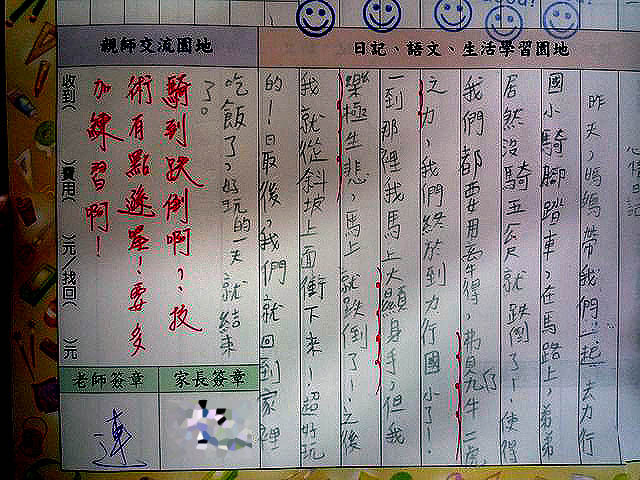 親師交流園地
日記、語文、生活學習園地
心情日記
昨天，媽媽帶我們一起去力行
國小騎腳踏車，在馬路上，弟弟
居然沒騎五公尺就跌倒了！使得
我們都要用牽得，費了九牛二虎
之力，我們終於到力行國小了！
一到那裡我馬上大顯身手，但我
樂極生悲，馬上就跌倒了！之後
我就從斜坡上面衝下來！超好玩
的！最後，我們就回到家裡
吃飯了，好玩的一天就結束
了。
騎到跌倒啊？技
術有點遜喔！要多
加練習啊！
收到( )費用( )元/找回( )元
家長簽章
老師簽章
連